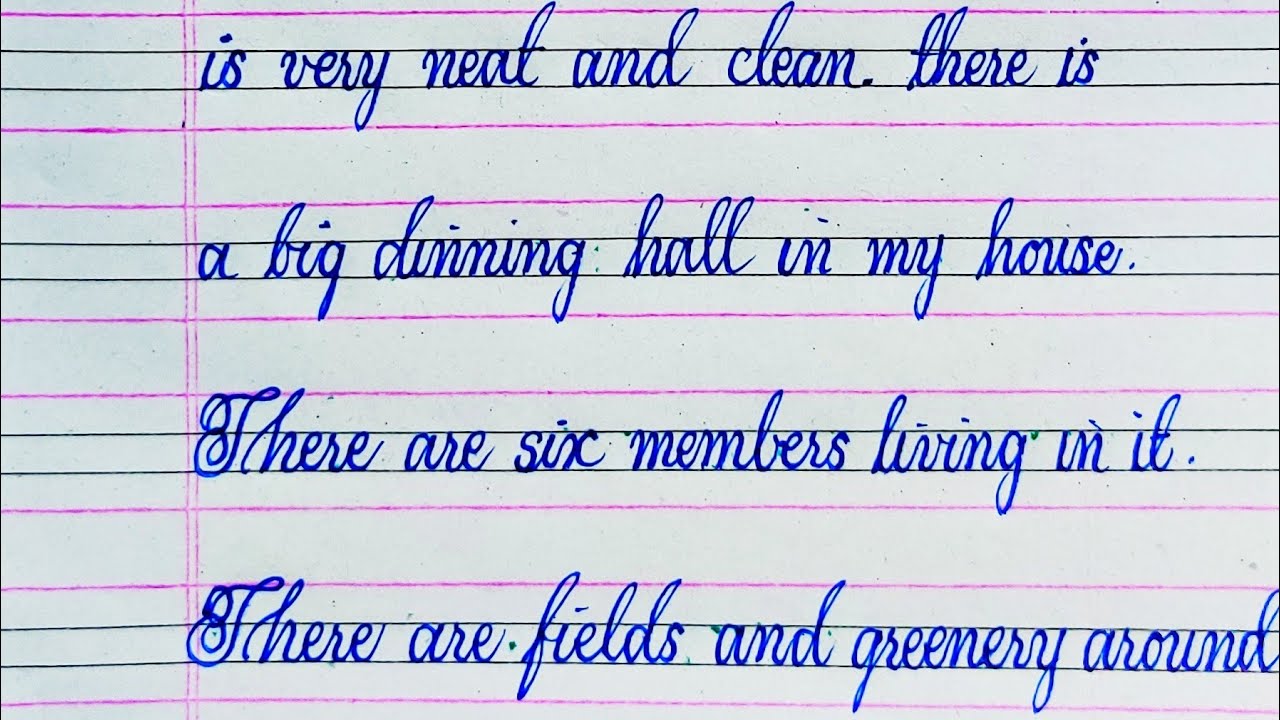 is very neat and clean. there is
a big dinning hall in my house.
There are six members living in it.
There are fields and greenery around